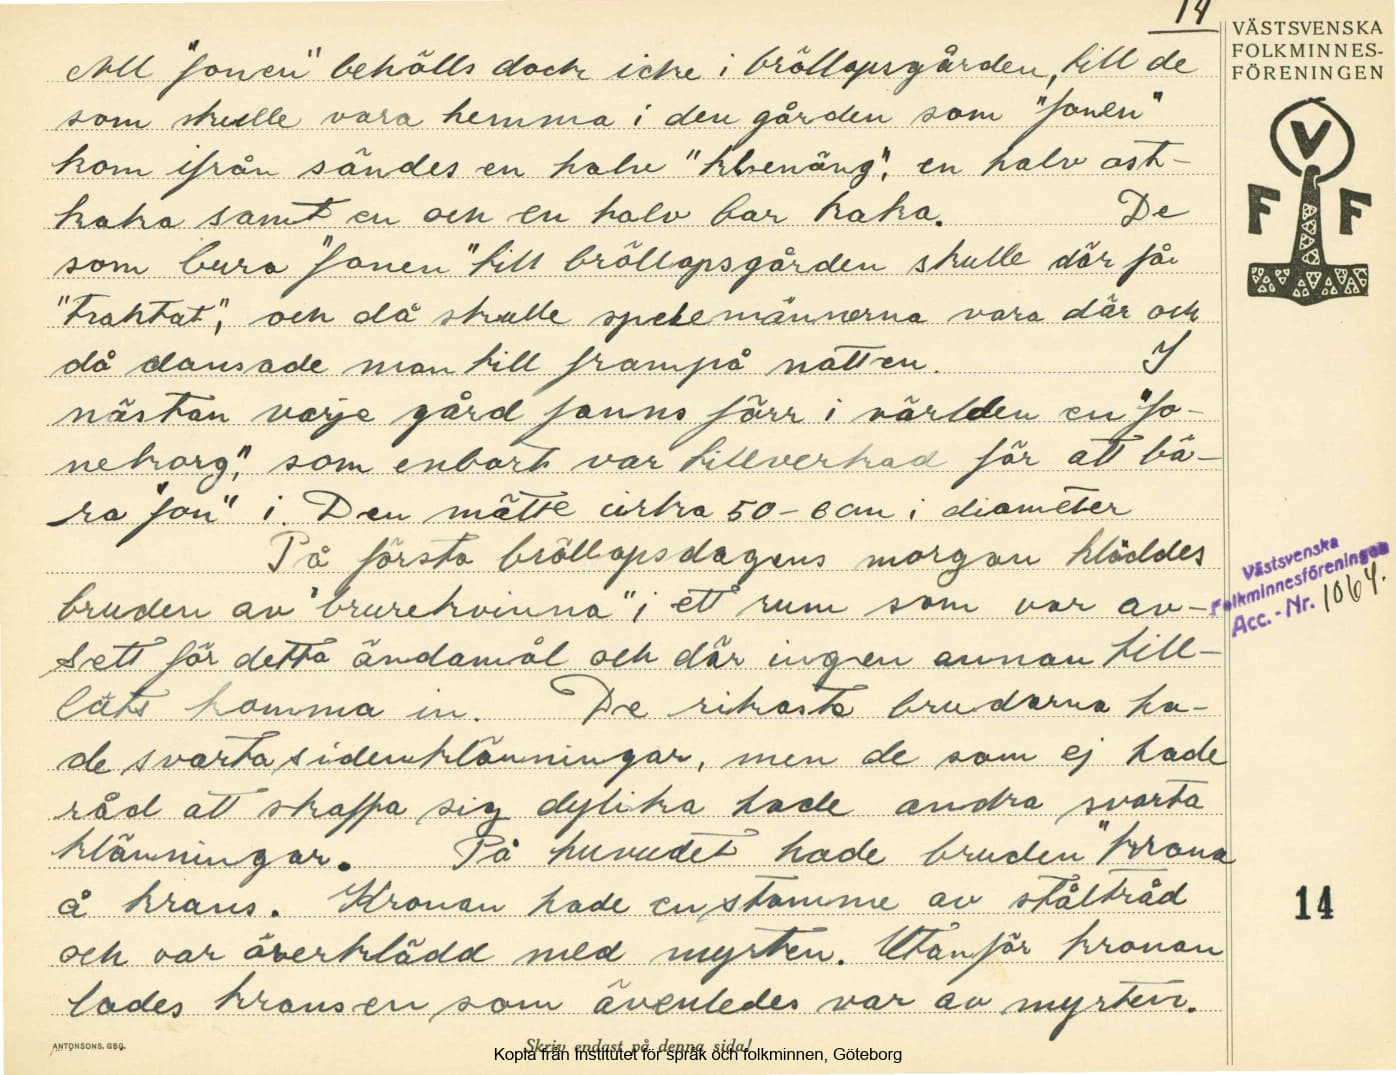 14
All "fonen" behölls dock icke i bröllopsgården, till de
som skulle vara hemma i den gården som "fonen"
kom ifrån sändes en halv " en halv ost-
kaka samt en och en halv bar kaka. De
som buro "fonen" till bröllopsgården skulle där få
"traktat", och då skulle spelemännerna vara där och
då dansade man till frampå natten. I
nästan varje gård fanns förr i världen en "fo-
nekorg", som enbart var tillverkad för att bä-
ra "fon" i. Den mätte cirka 50-6 cm i diameter
På första bröllopsdagens morgon kläddes
bruden av "brurekvinna" i ett rum som var av-
sett för detta ändamål och där ingen annan till-
läts komma in. De rikaste brudarna ha-
de svarta sidenklänningar, men de som ej hade
råd att skaffa sig dylika hade andra svarta
klänningar. På huvudet hade bruden "krona
å krans. Kronan hade en stomme av ståltråd
och var överklädd med myrten. Utanför kronan
lades kransen som ävenledes var av myrten.
VÄSTSVENSKA
FOLKMINNES-
FÖRENINGEN
V
F F
Västsvenska
Folkminnesföreningen
Acc. - Nr. 1064.
14
ANTONSONS, GBG.
Skriv endast på denna sida!
Kopia från Institutet för språk och folkminnen, Göteborg